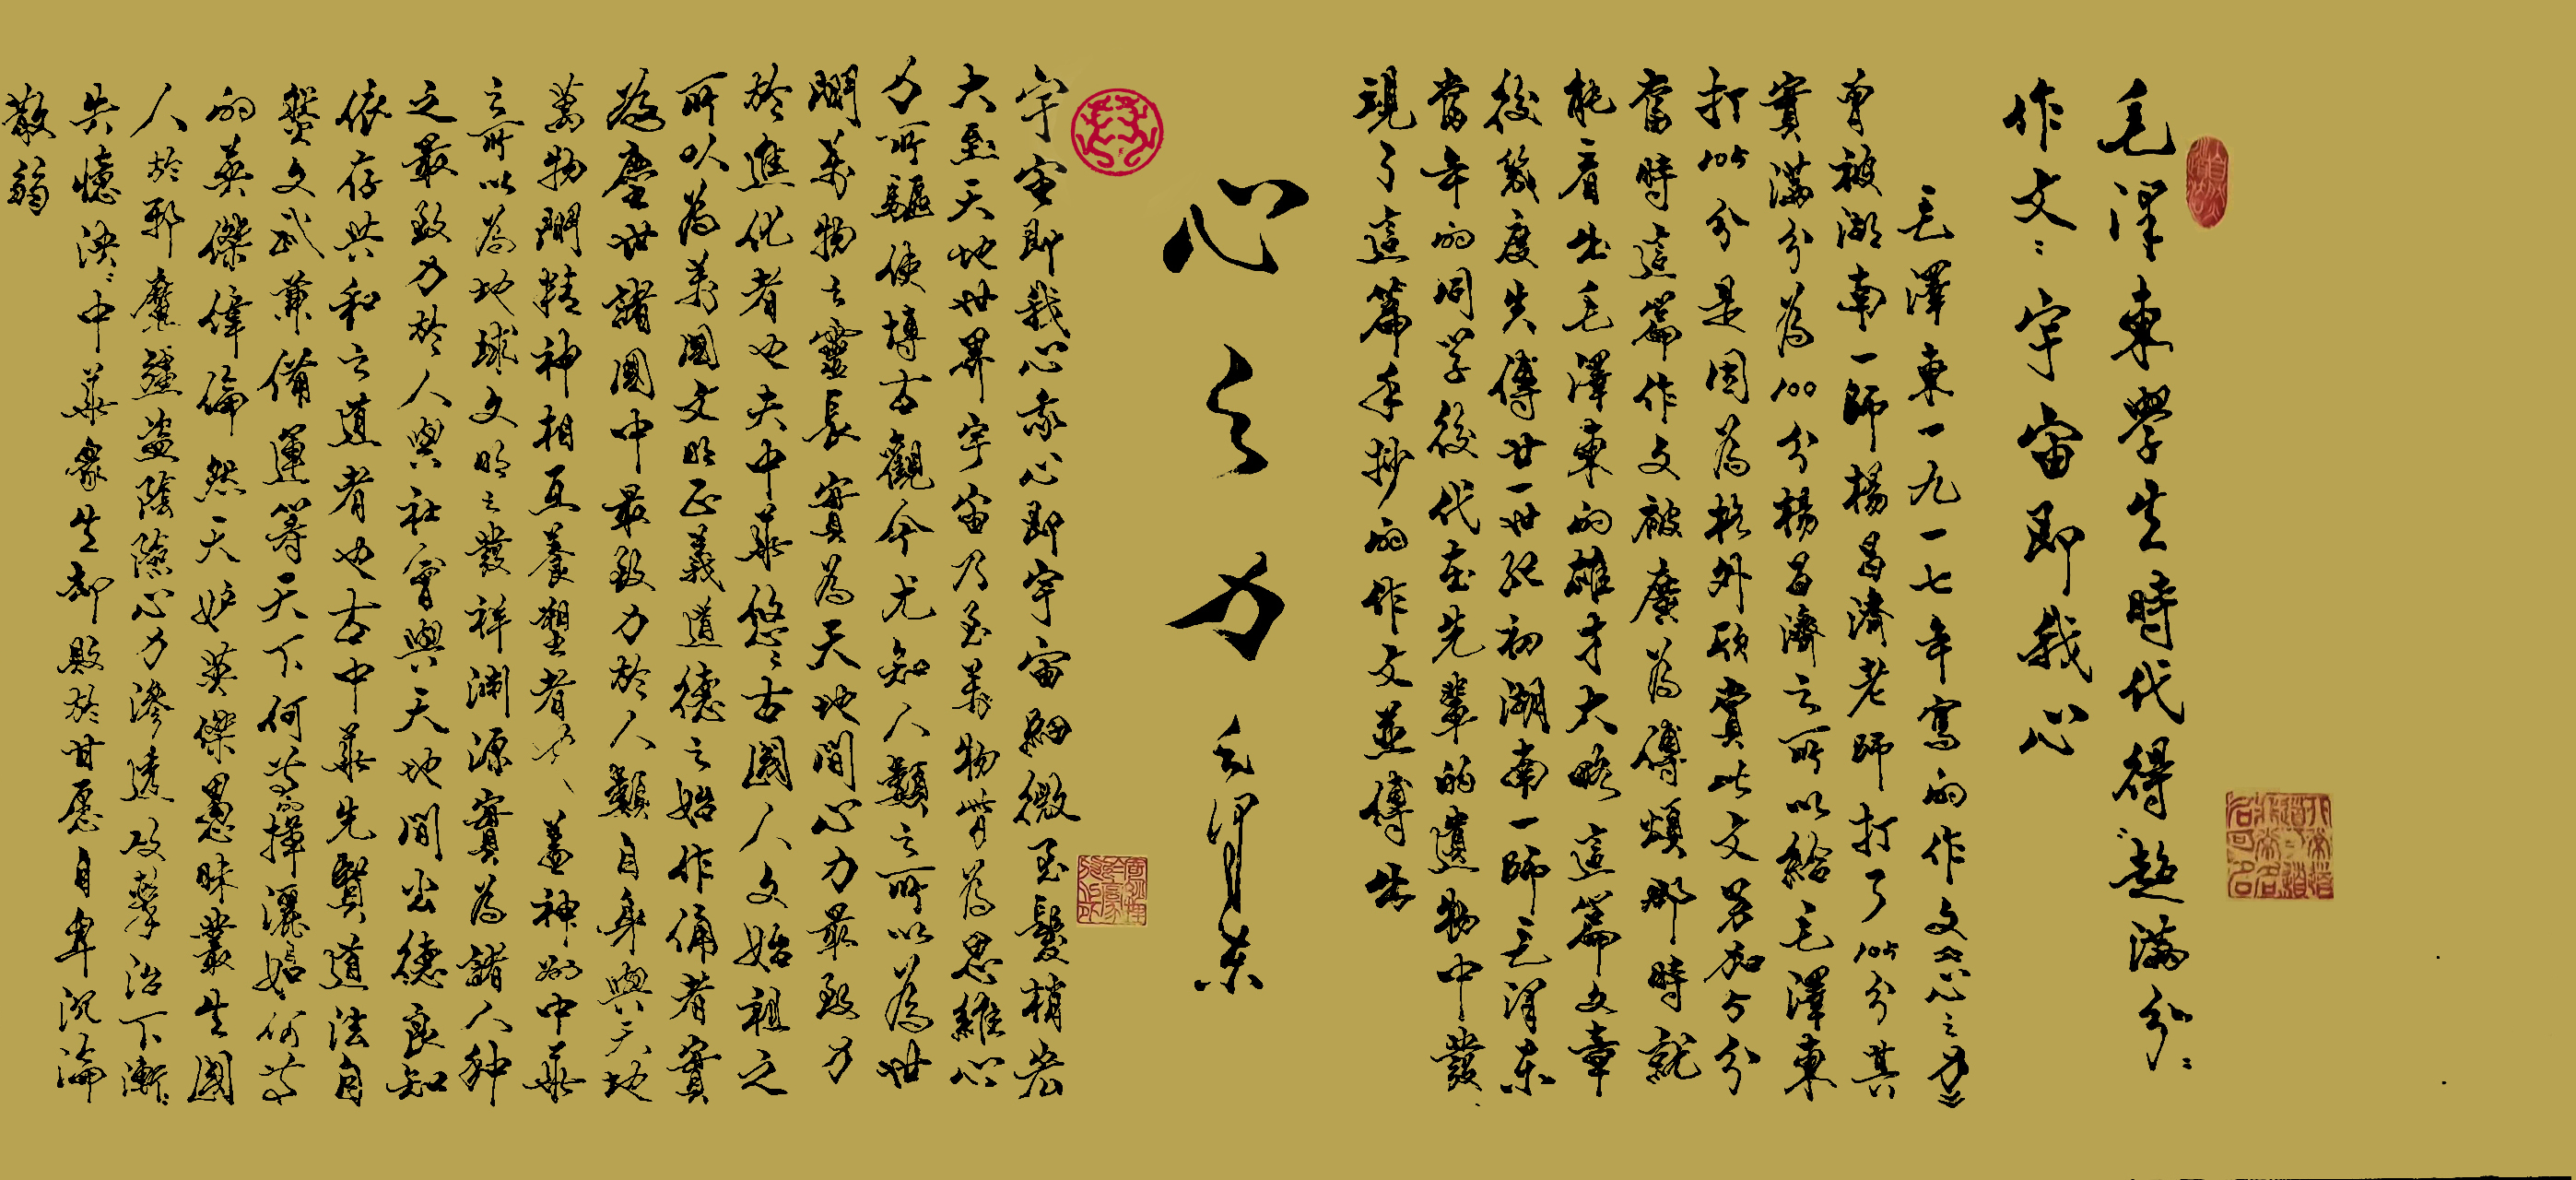 毛澤東學生時代得"超滿分"
作文：宇宙即我心
毛澤東一九一七年寫的作文《心之力》
曾被湖南一師楊昌濟老師打了105分其
實滿分為100分楊昌濟之所以給毛澤東
打105分是因為格外欣賞此文另加5分
當時這篇作文被廣為傳頌那時就
能看出毛澤東的雄才大略這篇文章
後幾度失傳廿一世紀初湖南一師毛澤东
當年的同学後代在先輩的遺物中發
現了這篇手抄的作文並傳出
心之力 毛泽东
宇宙即我心我心即宇宙細微至髮梢宏
大至天地世界宇宙乃至萬物皆為思維心
力所驅使博古觀今尤知人類之所以為世
間萬物之靈長實為天地間心力最致力
於進化者也夫中華悠悠古國人文始祖之
所以為萬國文明正義道德之始作俑者實
為塵世諸國中最致力於人類自身與天地
萬物間精神相互養塑者也蓋神州中華
之所以為地球文明之發祥淵源實為諸人种
之最致力於人與社會與天地間公德良知
依存共和之道者也古中華先賢道法自
然文武兼備運筹天下何等揮灑如何等
的英傑偉倫然天妒英傑愚昧叢生國
人於邪魔強盜陰險心力滲透攻擊治下漸漸
失憶泱泱中華眾生却敗於甘愿自卑沉淪
散弱